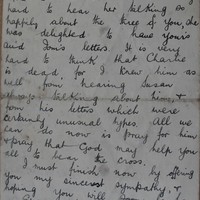 hard to hear her talking so
happily about the three of you, she
was delighted to have yours
and Tom's letters. It is very
hard to think that Charlie
is dead, for I knew him so
well from hearing Susan
always talking about him, &
from his letters which were
certainly unusual types. All we
can do now is pray for him
& pray, that God may help you
all to bear the cross.
I must finish now by offering
you my sincerest sympathy, &
hoping you will